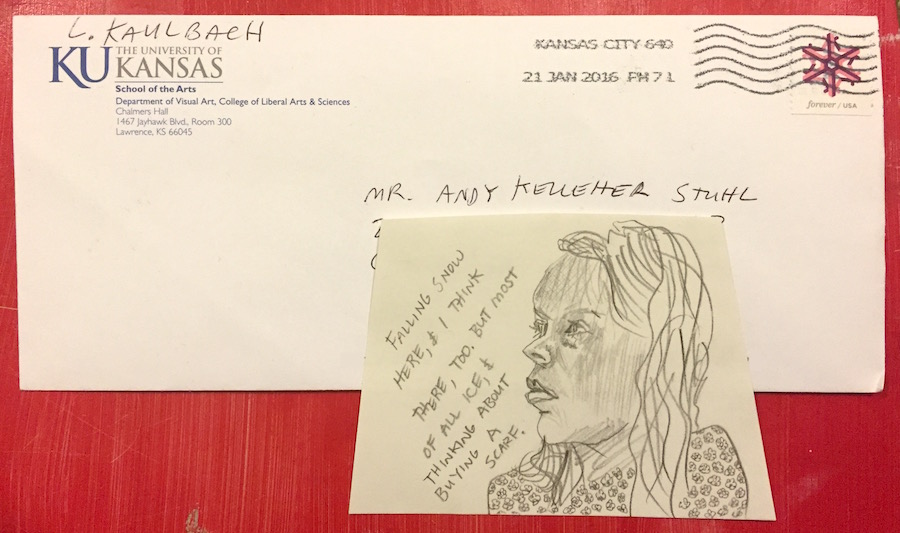 L. KAULBACH
KU THE UNIVERSITY OF
KANSAS
School of the Arts
Department of Visual Art, College of Liberal Arts & Sciences
Chalmers Hall
1467 Jayhawk Blvd., Room 300
Lawrence, KS 66045
KANSAS CITY 640
21 JAN 2016 PM 7 L
forever / USA
MR. ANDY KELLEHER STUHL
FALLING SNOW
HERE, & I THINK
THERE, TOO. BUT MOST
OF ALL ICE, &
THINKING ABOUT
BUYING A
SCARF.